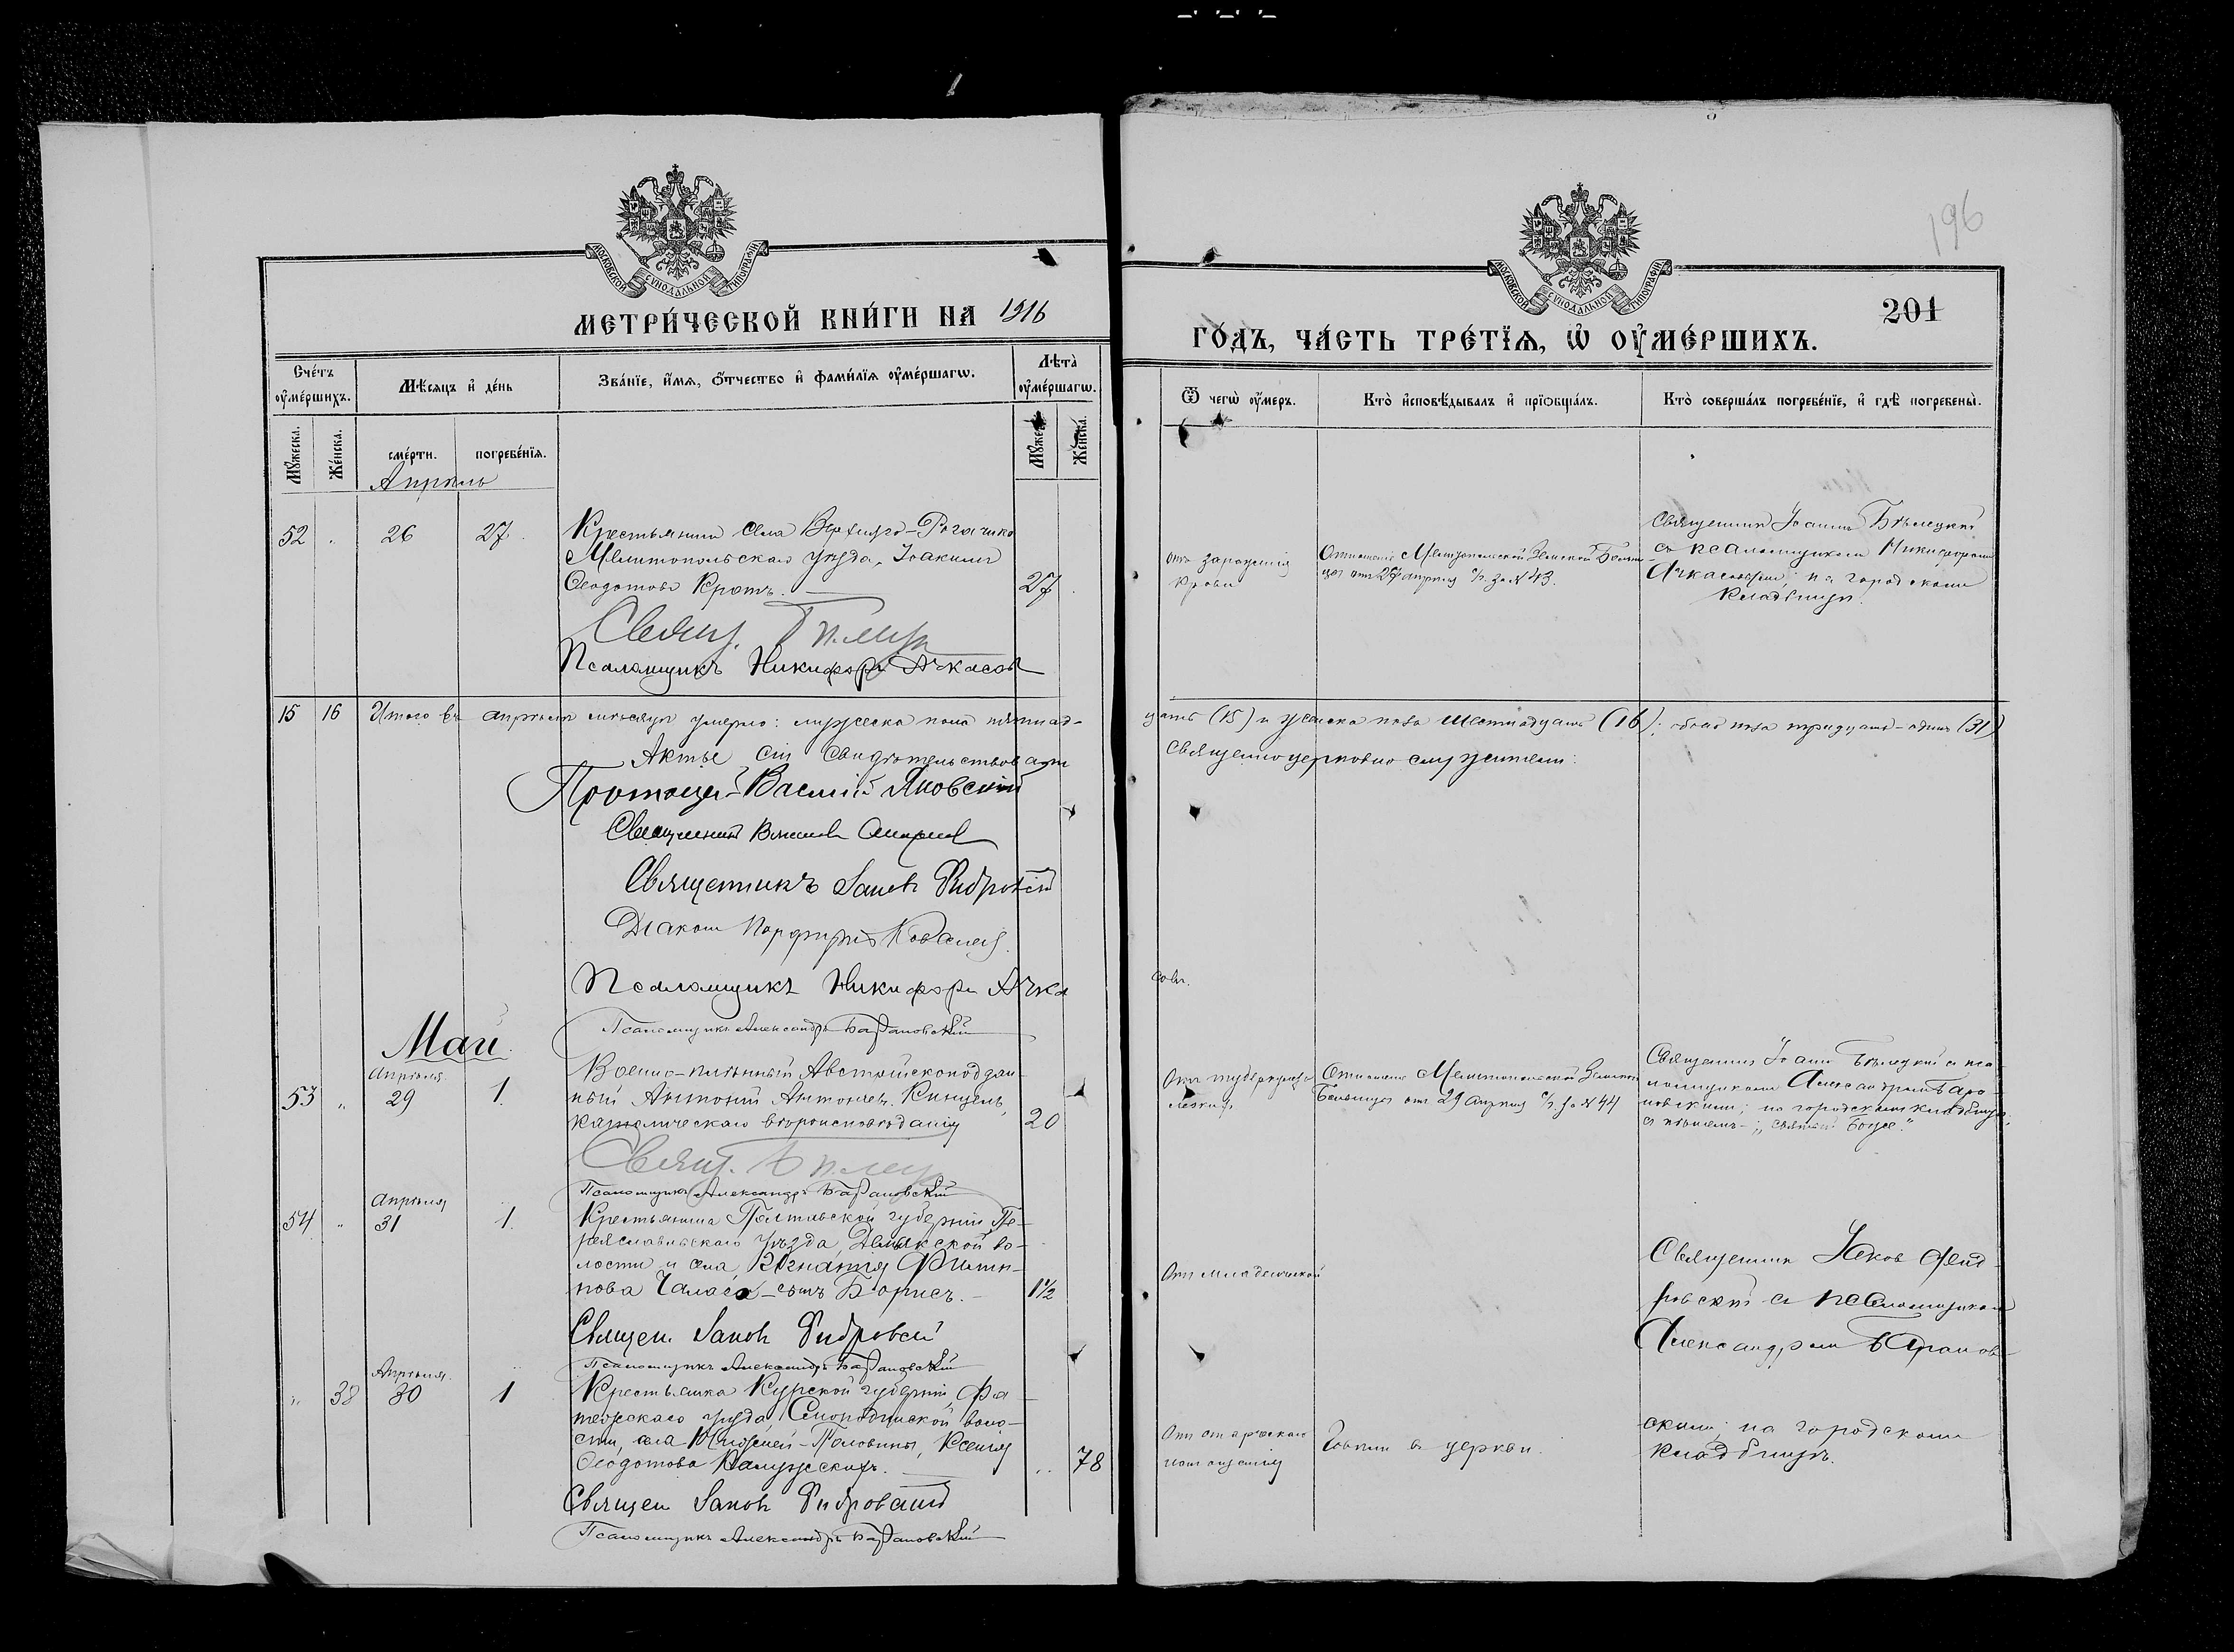 196
МОСКОВСКОЙ СѴНОДАЛЬНОЙ ТИПОГРАФІИ
МЕТРИ́ЧЕСКОЙ КНИ́ГИ НА 1916
Сче́тъ оу҆ме́ршихъ.
Мѣ́сяцъ и҆ де́нь
Зва́нїе, и҆́мѧ, ѻ҆́тчество и҆ фами́лїѧ оу҆ме́ршагѡ.
Лѣ́та оу҆ме́ршагѡ.
Мꙋ́жеска.
Же́нска.
сме́рти.
погребе́нїѧ.
Мꙋ́жеска.
Же́нска.
Апрѣль
52 26 27
Крестьянинъ села Верхняго-Рогачика
Мелитопольскаго уѣзда, Іоакимъ
Ѳеодотовъ Кротъ. 27
Свящ. Бѣлец
Псаломщикъ Никифоръ Ачкасовъ
15 16 Итого въ апрѣлѣ мѣсяцѣ умерло: мужеска пола пятнад-
Актъ сей свидѣтельствовали
Протоіер. Василій Яковскій
Священникъ
Священникъ Іаковъ Ѳедровскій
Діаконъ Порфирій Ковалевъ
Псаломщикъ Никифоръ Ачка
Псаломщикъ Александръ Барановскій
Май
53 Апрѣля 29 1.
Военно-плѣнный Австрійскоподдан-
ный Антоній Антоновъ Кинцель,
католическаго вѣроисповѣданія 20
Свящ. Бѣлец
Псаломщикъ Александръ Барановскій
54 Апрѣля 31 1.
Крестьянина Полтавской губерніи Пе-
реяславльскаго уѣзда, во-
лости и села Игнатія Филип-
пова сынъ Борисъ. 1½
Священ. Іаковъ Ѳедровскій
Псаломщикъ Александръ Барановскій
38 Апрѣля 30 1
Крестьянка Курской губерніи, Фа-
тежскаго уѣзда, воло-
сти, села Половины, Ксенія
Ѳеодотова 78
Священ. Іаковъ Ѳедровскій
Псаломщикъ Александръ Барановскій
МОСКОВСКОЙ СѴНОДАЛЬНОЙ ТИПОГРАФІИ
201
ГО́ДЪ, ЧА́СТЬ ТРЕ́ТЇѦ, Ѡ҆ ОУ҆МЕ́РШИХЪ.
Ѿ чегѡ̀ оу҆́меръ.
Кто̀ и҆сповѣ́дывалъ и҆ прїѻбща́лъ.
Кто̀ соверша́лъ погребе́нїе, и҆ гдѣ̀ погребены̀.
Отъ зараженія
крови
Отношеніе Мелитопольской Земской Больни-
цы отъ 27 апрѣля с/г. за № 43.
Священникъ Іоаннъ Бѣлецкій
съ псаломщикомъ Никифоромъ
Ачкасовымъ; на городскомъ
кладбищѣ.
цать (15) и женска пола шестнадцать (16); обоего пола тридцать-одинъ (31)
Священноцерковно служители:
совъ.
Отъ туберкулеза
легкихъ
Отношеніе Мелитопольской Земской
Больницы отъ 29 Апрѣля с/г. за № 44
Священникъ Іоаннъ Бѣлецкій съ пса-
ломщикомъ Александромъ Бара-
новскимъ; на городскомъ кладбищѣ,
съ пѣніемъ „Святый Боже“.
Отъ младенческой
Священникъ Іаковъ Ѳед-
ровскій съ псаломщикомъ
Александромъ Баранов-
Отъ старческаго
истощенія
Говѣли въ церкви.
скимъ; на городскомъ
кладбищѣ.